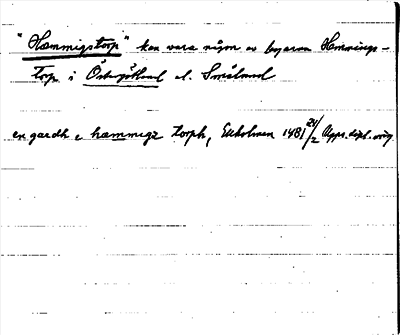 "Hæmmigstorp" kan vara någon av byarna Hemmings-
torp i Östergötland el. Småland
en gardh i hæmmigx torph, Ekholmen 1481 21/2 Upps. dipl. orig.